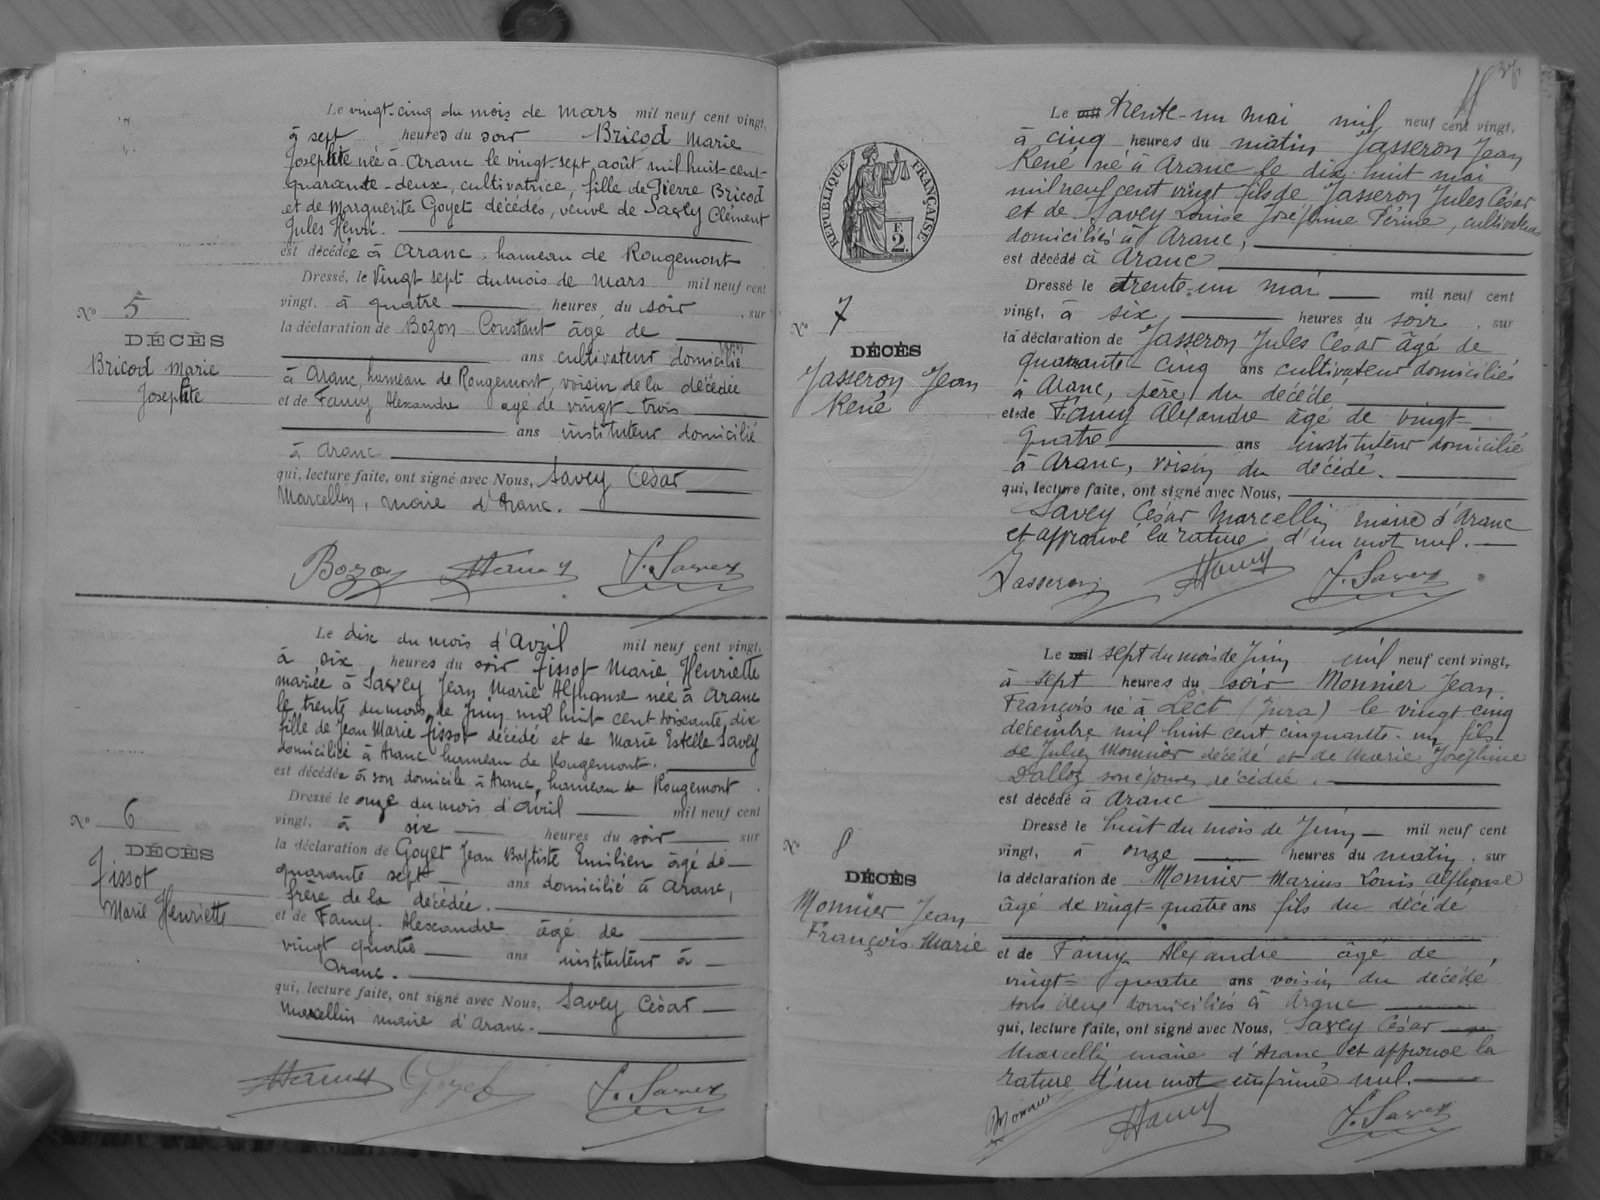 Le vingt-cinq du mois de mars mil neuf cent vingt,
à sept heures du soir Bricod Marie
Josephte née à Aranc le vingt-sept août mil huit-cent-
quarante-deux, cultivatrice, fille de Pierre Bricod
et de Marguerite Goyet décédés, veuve de Savey Clément
Jules Henri.
est décédée à Aranc, hameau de Rougemont
Dressé, le vingt sept du mois de mars mil neuf cent
vingt, à quatre heures du soir, sur
la déclaration de Bozon Constant âgé de
ans cultivateur domicilié
à Aranc, hameau de Rougemont, voisin de la décédée
et de Famy Alexandre agé de vingt-trois
ans instituteur domicilié
à Aranc
qui, lecture faite, ont signé avec Nous, Savey César
Marcellin, maire d'Aranc.
Nº 5
DÉCÈS
Bricod Marie
Josephte
Bozon Famy J. Savey
Le dix du mois d'Avril mil neuf cent vingt,
à six heures du soir Tissot Marie Henriette
mariée à Savey Jean Marie Alphonse née à Aranc
le trente du mois de Juin mil huit cent soixante dix
fille de Jean Marie Tissot décédé et de Marie Estelle Savey
domicilié à Aranc hameau de Rougemont.
est décédée à son domicile à Aranc, hameau de Rougemont.
Dressé le onze du mois d'avril mil neuf cent
vingt, à six heures du soir sur
la déclaration de Goyet Jean Baptiste Emilien âgé de
quarante sept ans domicilié à Aranc,
frère de la décédée.
et de Famy Alexandre âgé de
vingt quatre ans instituteur à
Aranc.
qui, lecture faite, ont signé avec Nous, Savey César
Marcellin maire d'Aranc.
Nº 6
DÉCÈS
Tissot
Marie Henriette
Famy Goyet J. Savey
RÉPUBLIQUE FRANÇAISE
F.
2.
Le mil trente-un mai mil neuf cent vingt,
à cinq heures du matin Jasseron Jean
René né à Aranc le dix-huit mai
mil neuf cent vingt fils de Jasseron Jules César
et de Savey Louise Joséphine Férine, cultivateurs
domiciliés à Aranc,
est décédé à Aranc
Dressé le trente-un mai mil neuf cent
vingt, à six heures du soir, sur
la déclaration de Jasseron Jules César âgé de
quarante-cinq ans cultivateur domiciliés
à Aranc, père du décédé
et de Famy Alexandre âgé de vingt-
quatre ans instituteur domicilié
à Aranc, voisin du décédé.
qui, lecture faite, ont signé avec Nous,
Savey César Marcellin maire d'Aranc
et approuvé la rature d'un mot nul.
Nº 7
DÉCÈS
Jasseron Jean
René
Jasseron Famy J. Savey
Le mil sept du mois de Juin mil neuf cent vingt,
à sept heures du soir Monnier Jean
François né à Lect (Jura) le vingt cinq
décembre mil huit cent cinquante-un fils
de Julien Monnier décédé et de Marie Joséphine
Dalloz son épouse, décédée.
est décédé à Aranc
Dressé le huit du mois de Juin mil neuf cent
vingt, à onze heures du matin, sur
la déclaration de Monnier Marius Louis Alphonse
âgé de vingt-quatre ans fils du décédé
et de Famy Alexandre âgé de,
vingt-quatre ans voisin du décédé
tous deux domiciliés à Aranc
qui, lecture faite, ont signé avec Nous, Savey César
Marcellin maire d'Aranc et approuvé la
rature d'un mot imprimé nul.
Nº 8
DÉCÈS
Monnier Jean
François Marie
Monnier Famy J. Savey